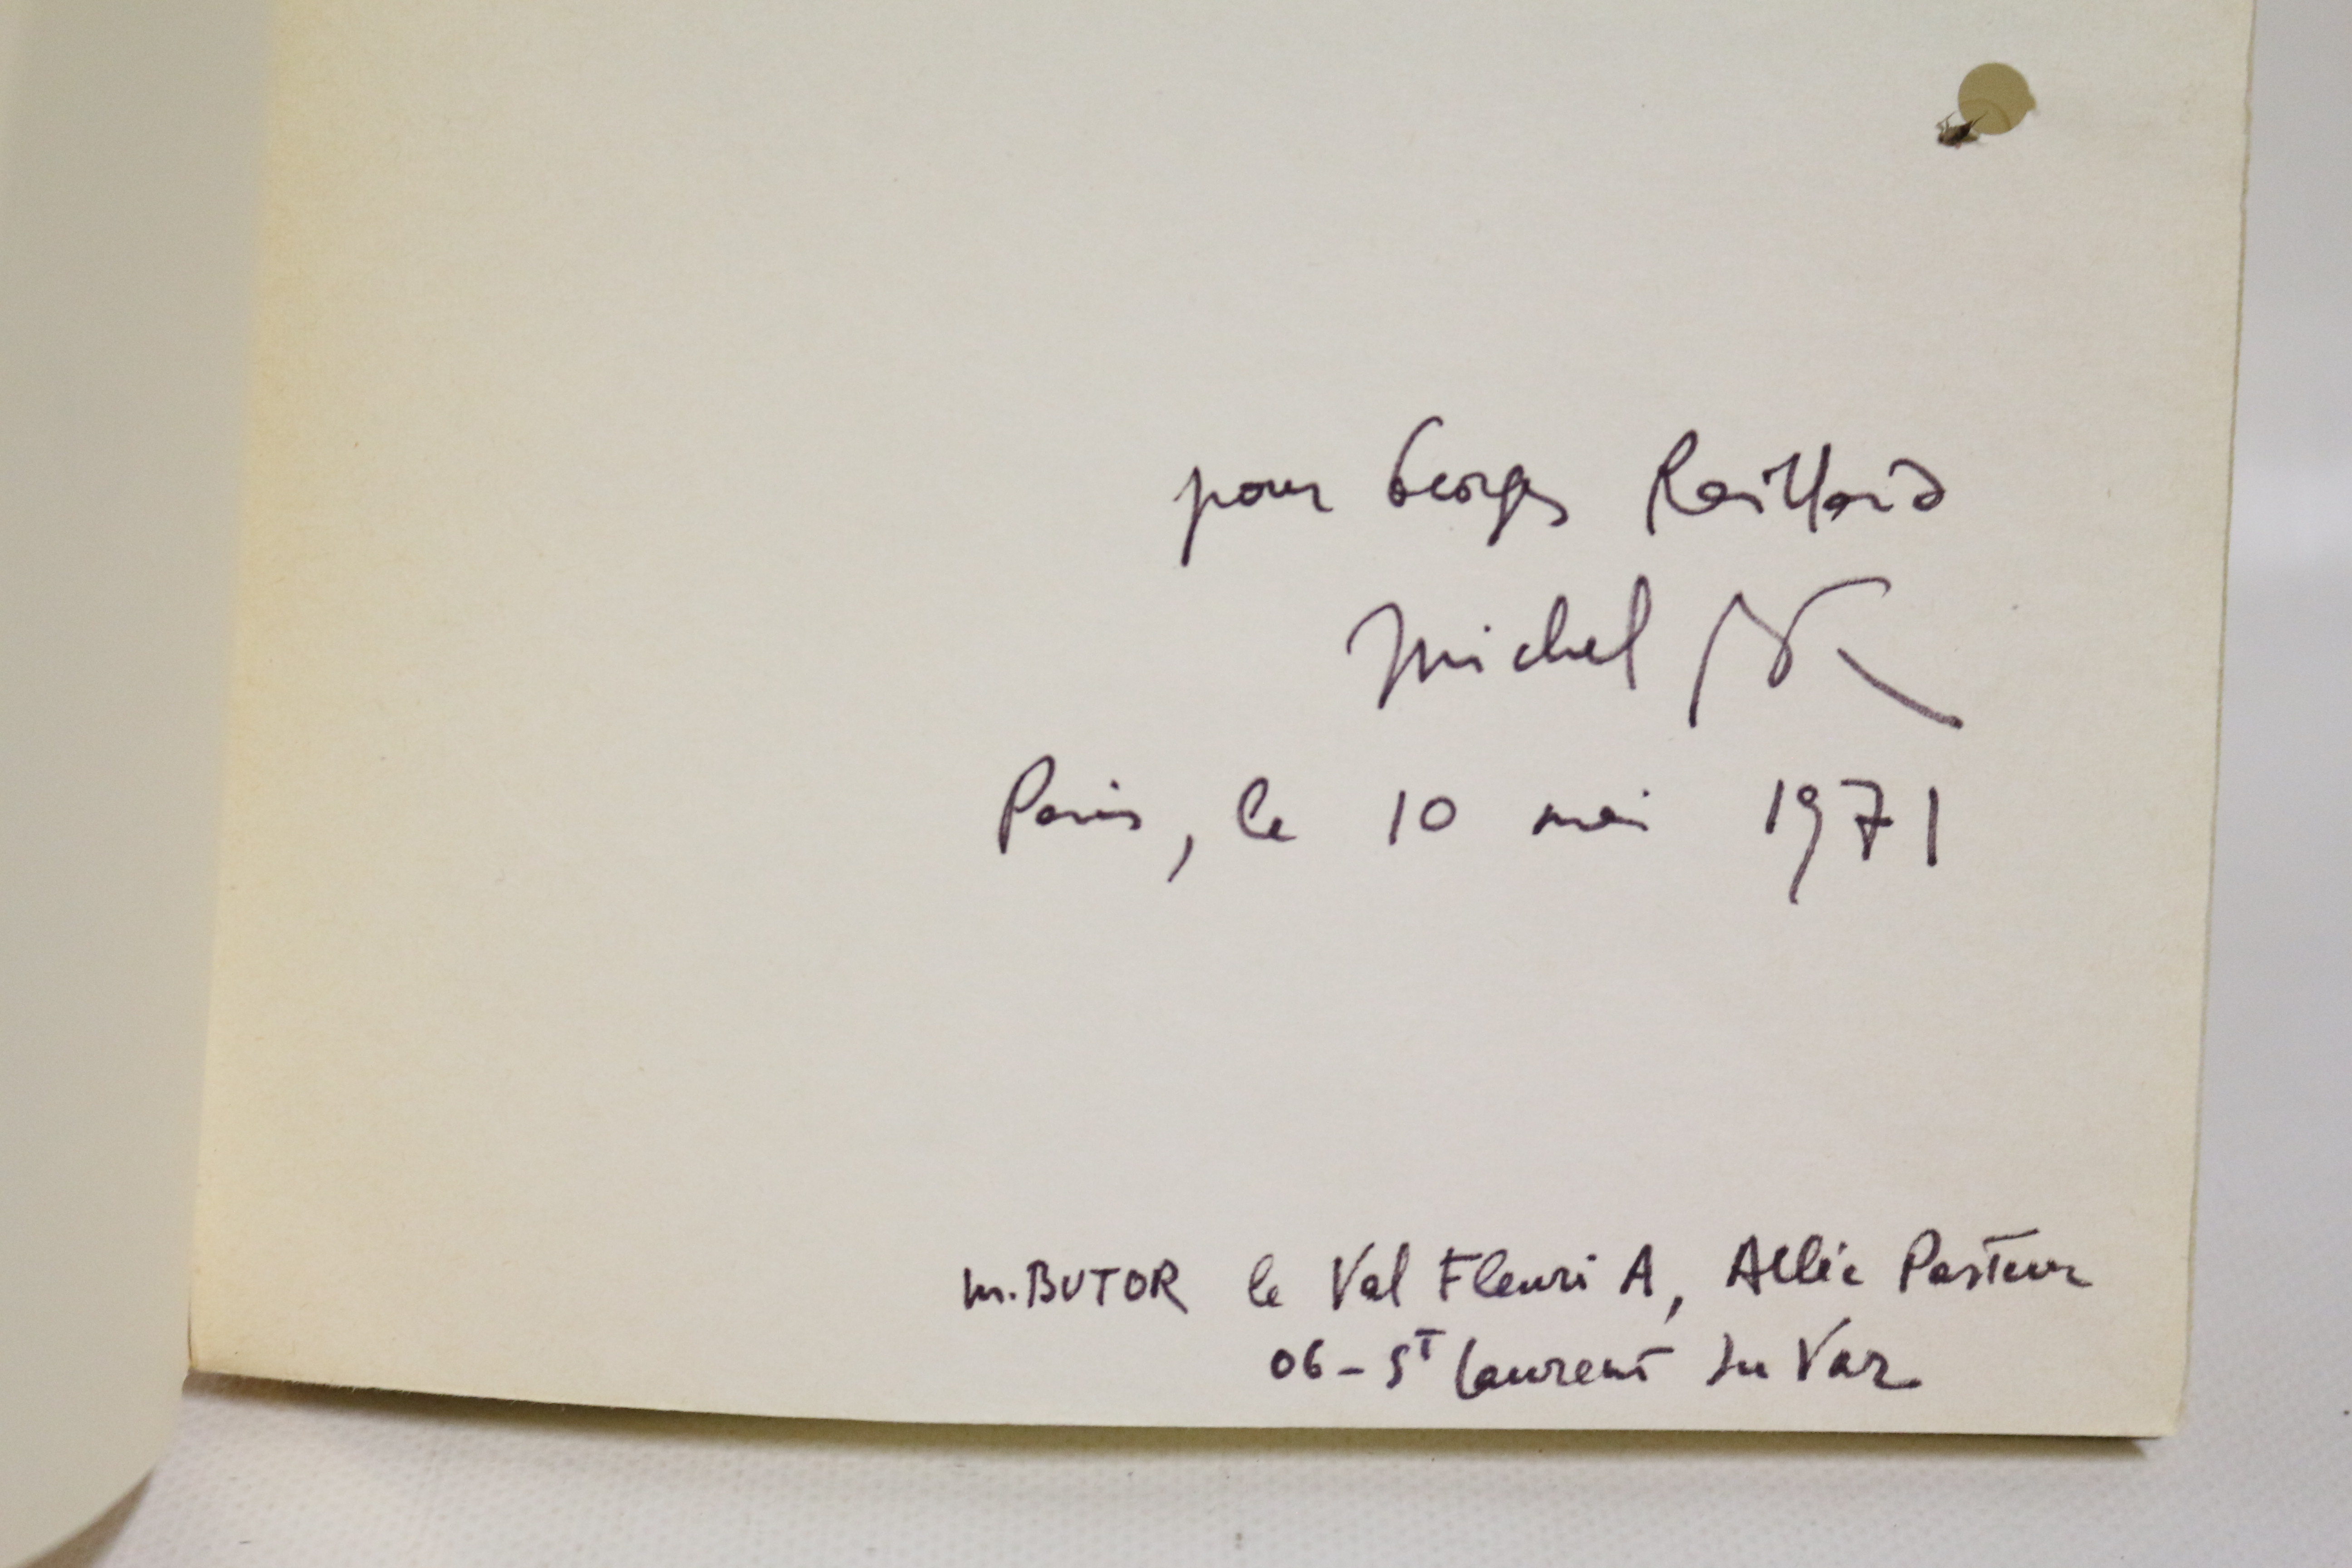 pour Georges Raillard
Michel
Paris, le 10 mai 1971
M. BUTOR le Val Fleuri A, Allée Pasteur
06 - ST Laurent du Var